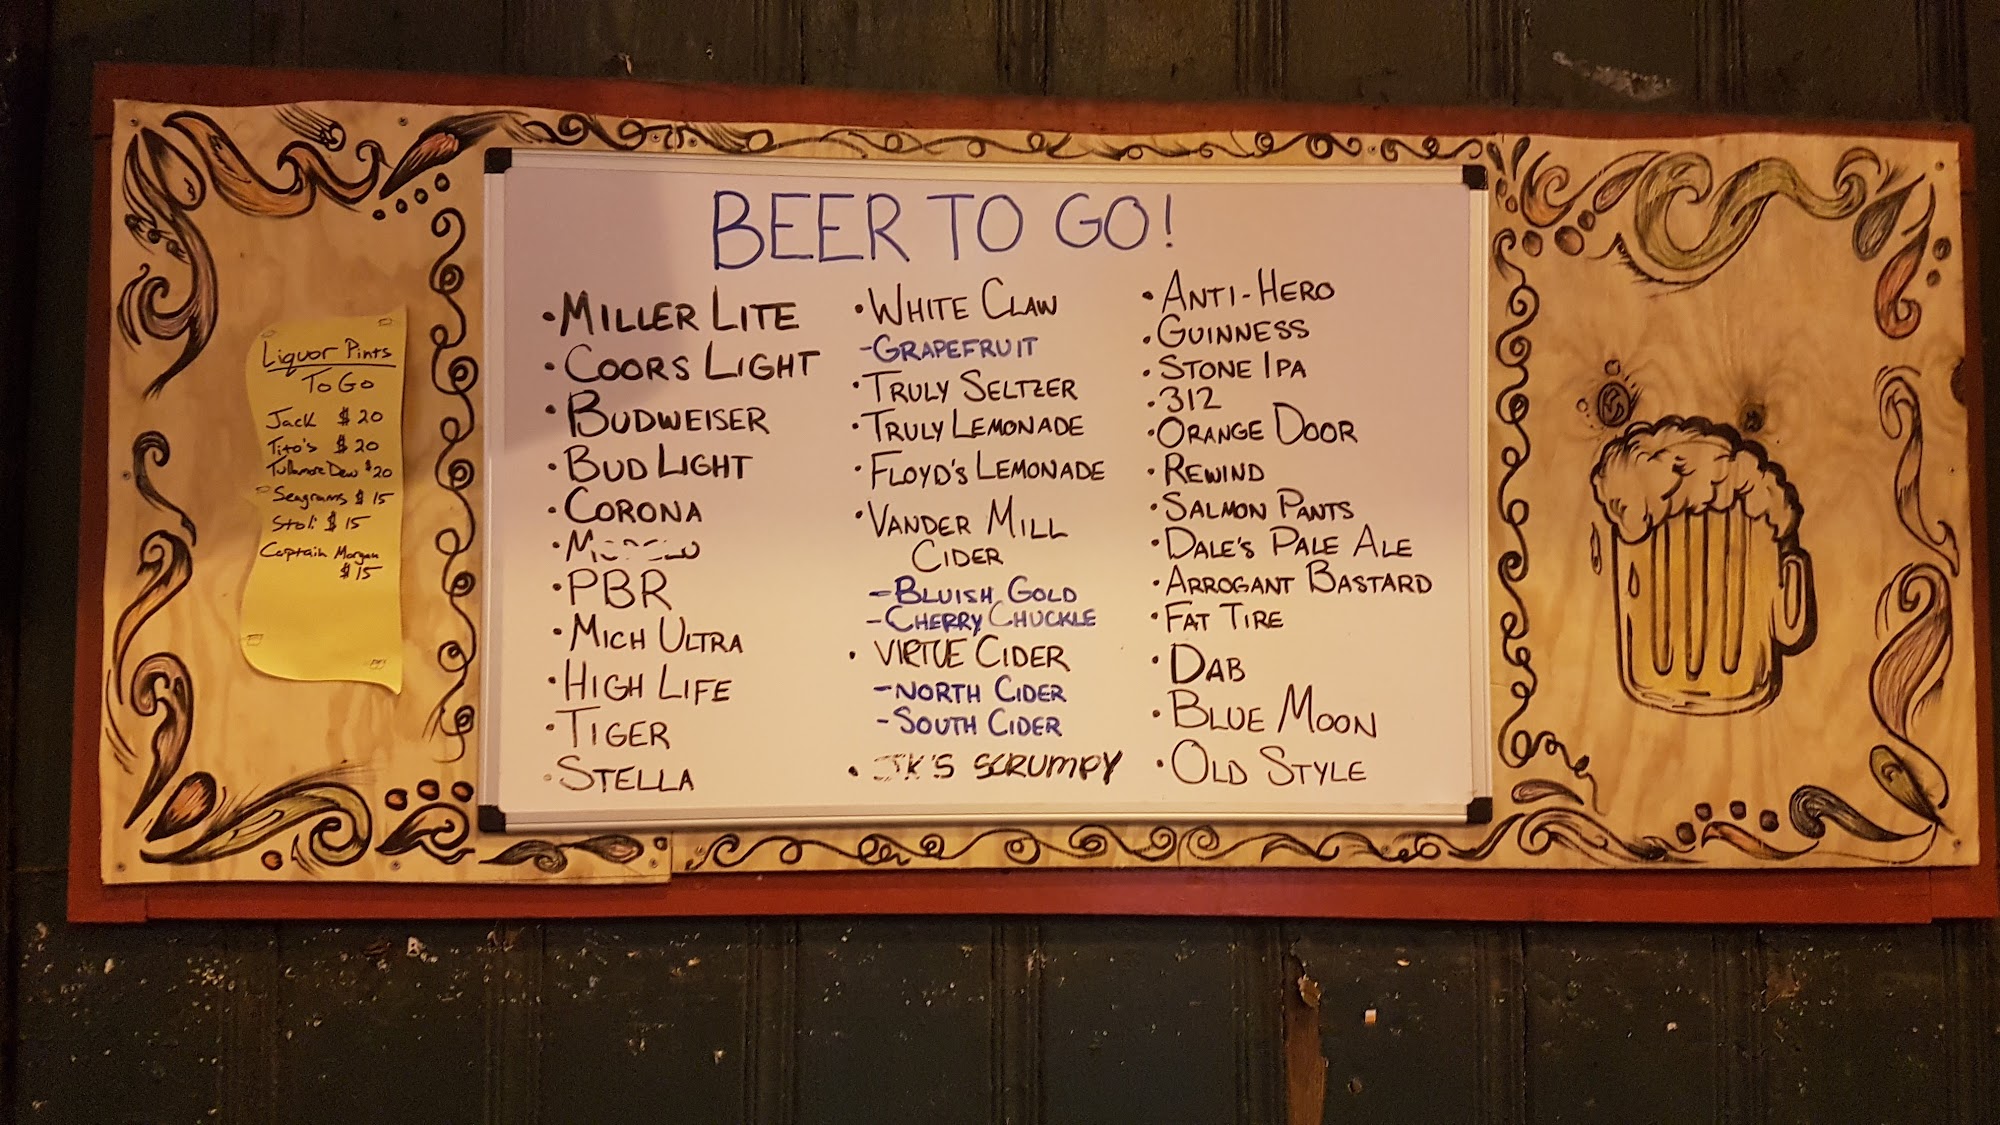 BEER TO GO!
• MILLER LITE
• COORS LIGHT
• BUDWEISER
• BUD LIGHT
• CORONA
• PBR
• MICH ULTRA
• HIGH LIFE
• TIGER
• STELLA
• WHITE CLAW
-GRAPEFRUIT
• TRULY SELTZER
• TRULY LEMONADE
• FLOYD'S LEMONADE
• VANDER MILL
CIDER
-BLUISH GOLD
-CHERRY CHUCKLE
• VIRTUE CIDER
-NORTH CIDER
-SOUTH CIDER
• JK'S SCRUMPY
• ANTI-HERO
• GUINNESS
• STONE IPA
• 312
• ORANGE DOOR
• REWIND
• SALMON PANTS
• DALE'S PALE ALE
• ARROGANT BASTARD
• FAT TIRE
• DAB
• BLUE MOON
• OLD STYLE
Liquor Pints
To Go
Jack $20
Tito's $20
Tullamore Dew $20
Seagrams $15
Stoli $15
Captain Morgan
$15